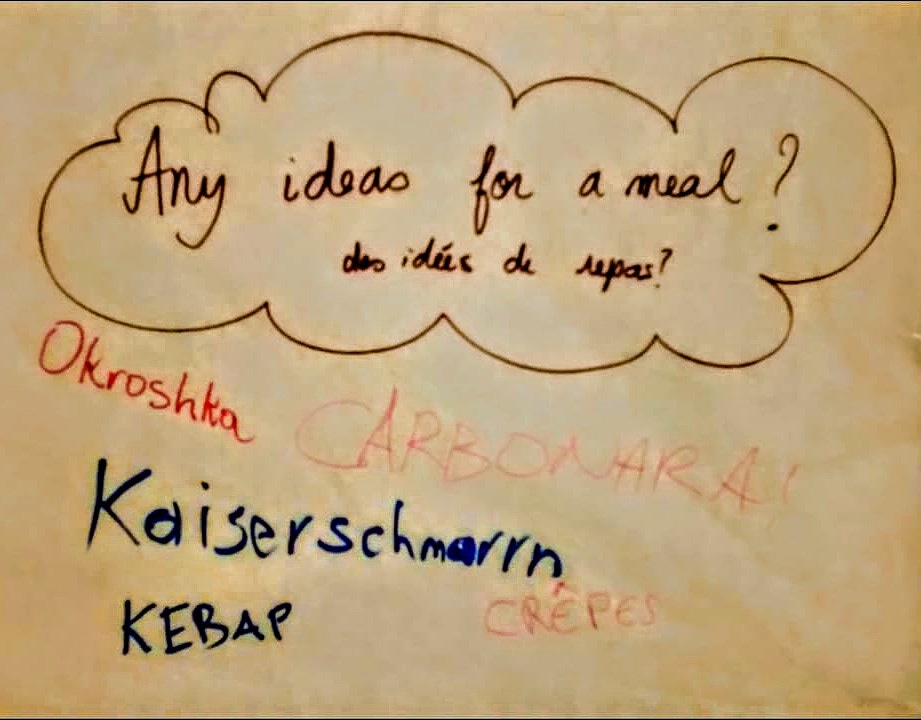 Any ideas for a meal?
des idées de repas?
Okroshka
CARBONARA!
Kaiserschmarrn
KEBAP
CRÊPES